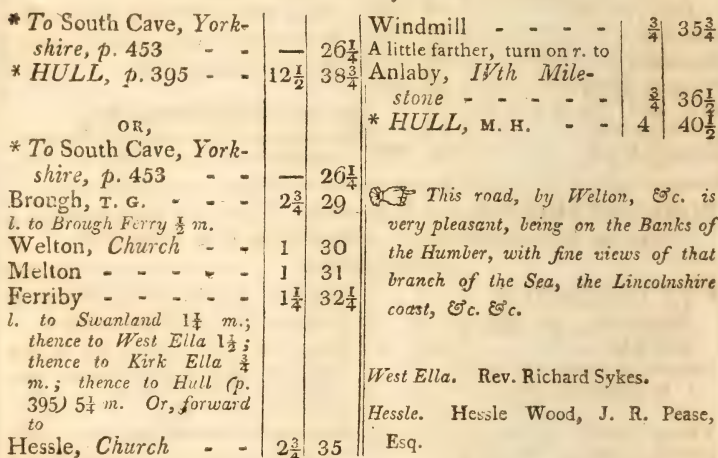 * To South Cave, York-
shire, p. 453 - - — 26¼
* HULL, p. 395 - - 12½ 38¾
OR,
* To South Cave, York-
shire, p. 453 - - — 26¼
Brough, T. G. - - - 2¾ 29
l. to Brough Ferry ½ m.
Welton, Church - - 1 30
Melton - - - - - 1 31
Ferriby - - - - - 1¼ 32¼
l. to Swanland 1¼ m.;
thence to West Ella 1½;
thence to Kirk Ella ¾
m.; thence to Hull (p.
395) 5¼ m. Or, forward
to
Hessle, Church - - 2¾ 35
Windmill - - - - ¾ 35¾
A little farther, turn on r. to
Anlaby, IVth Mile-
stone - - - - - ¾ 36½
* HULL, M. H. - - 4 40½
☞ This road, by Welton, &c. is
very pleasant, being on the Banks of
the Humber, with fine views of that
branch of the Sea, the Lincolnshire
coast, &c. &c.
West Ella. Rev. Richard Sykes.
Hessle. Hessle Wood, J. R. Pease,
Esq.